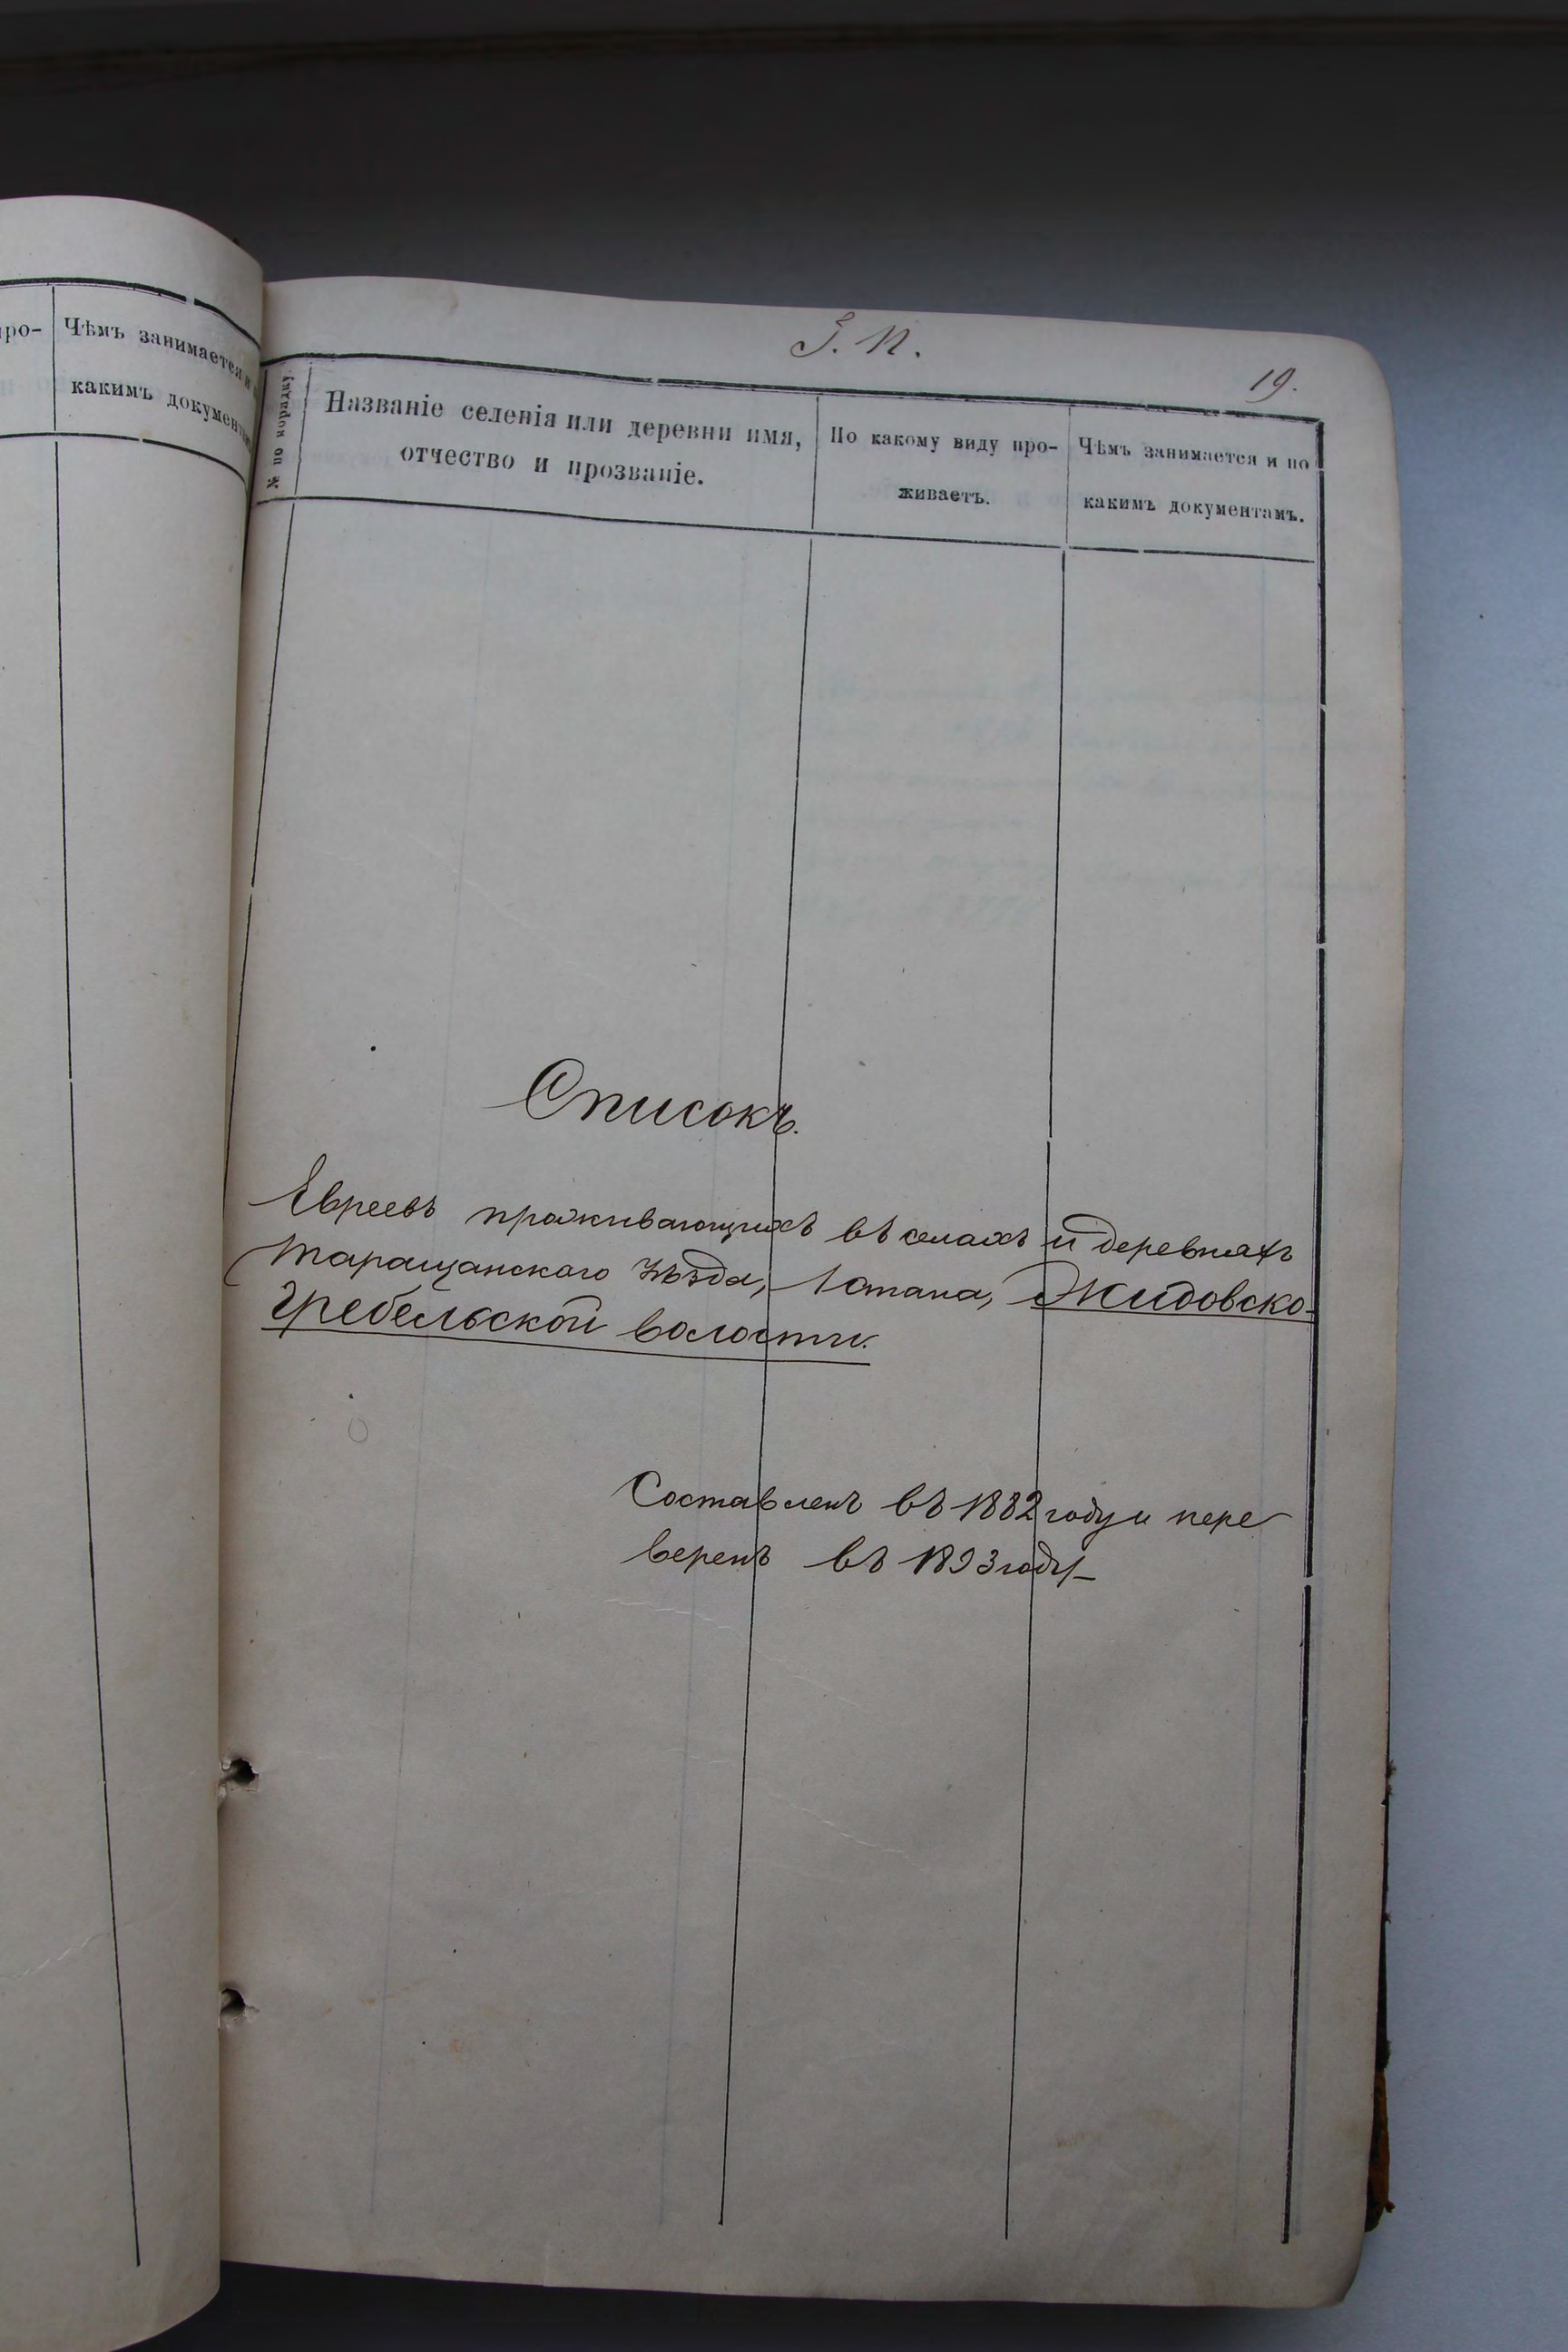 про-
Чѣмъ занимается и
какимъ документ
19.
№ по порядку
Названіе селенія или деревни имя,
отчество и прозваніе.
По какому виду про-
живаетъ.
Чѣмъ занимается и по
какимъ документамъ.
Списокъ.
Евреевъ проживающихъ въ селахъ и деревняхъ
Таращанскаго уѣзда, 1 стана, Жидовско-
Гребельской волости.
Составленъ въ 1882 году и пере
веренъ въ 1893 году